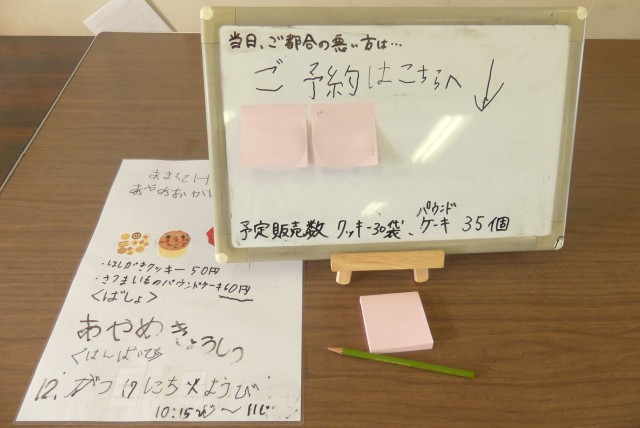 当日、ご都合の悪い方は…
ご予約はこちらへ↓
予定販売数 クッキー30袋、パウンドケーキ 35個
あやめおかし
・ほしがきクッキー 50円
・さつまいものパウンドケーキ60円
<ばしょ>
あやめきょうしつ
<はんばいび>
12.がつ 17にち 火ようび
10:15ふん〜11じ